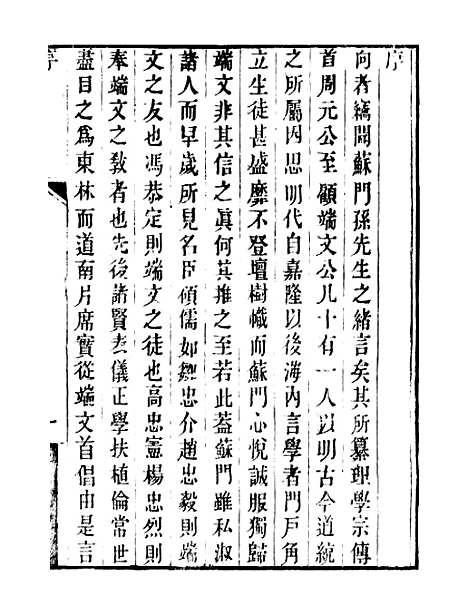 序
向者竊聞蘇門孫先生之緒言矣其所纂理學宗傳
首周元公至顧端文公凡十有一人以明古今道統
之所屬因思明代自嘉隆以後海内言學者門戸角
立生徒甚盛靡不登壇樹幟而蘇門心悅誠服獨歸
端文非其信之眞何其推之至若此蓋蘇門雖私淑
諸人而早歲所見名臣碩儒如鄒忠介趙忠毅則端
文之友也馮恭定則端文之徒也高忠憲楊忠烈則
奉端文之敎者也先後諸賢表儀正學扶植倫常世
盡目之爲東林而道南片席實從端文首倡由是言
序
一